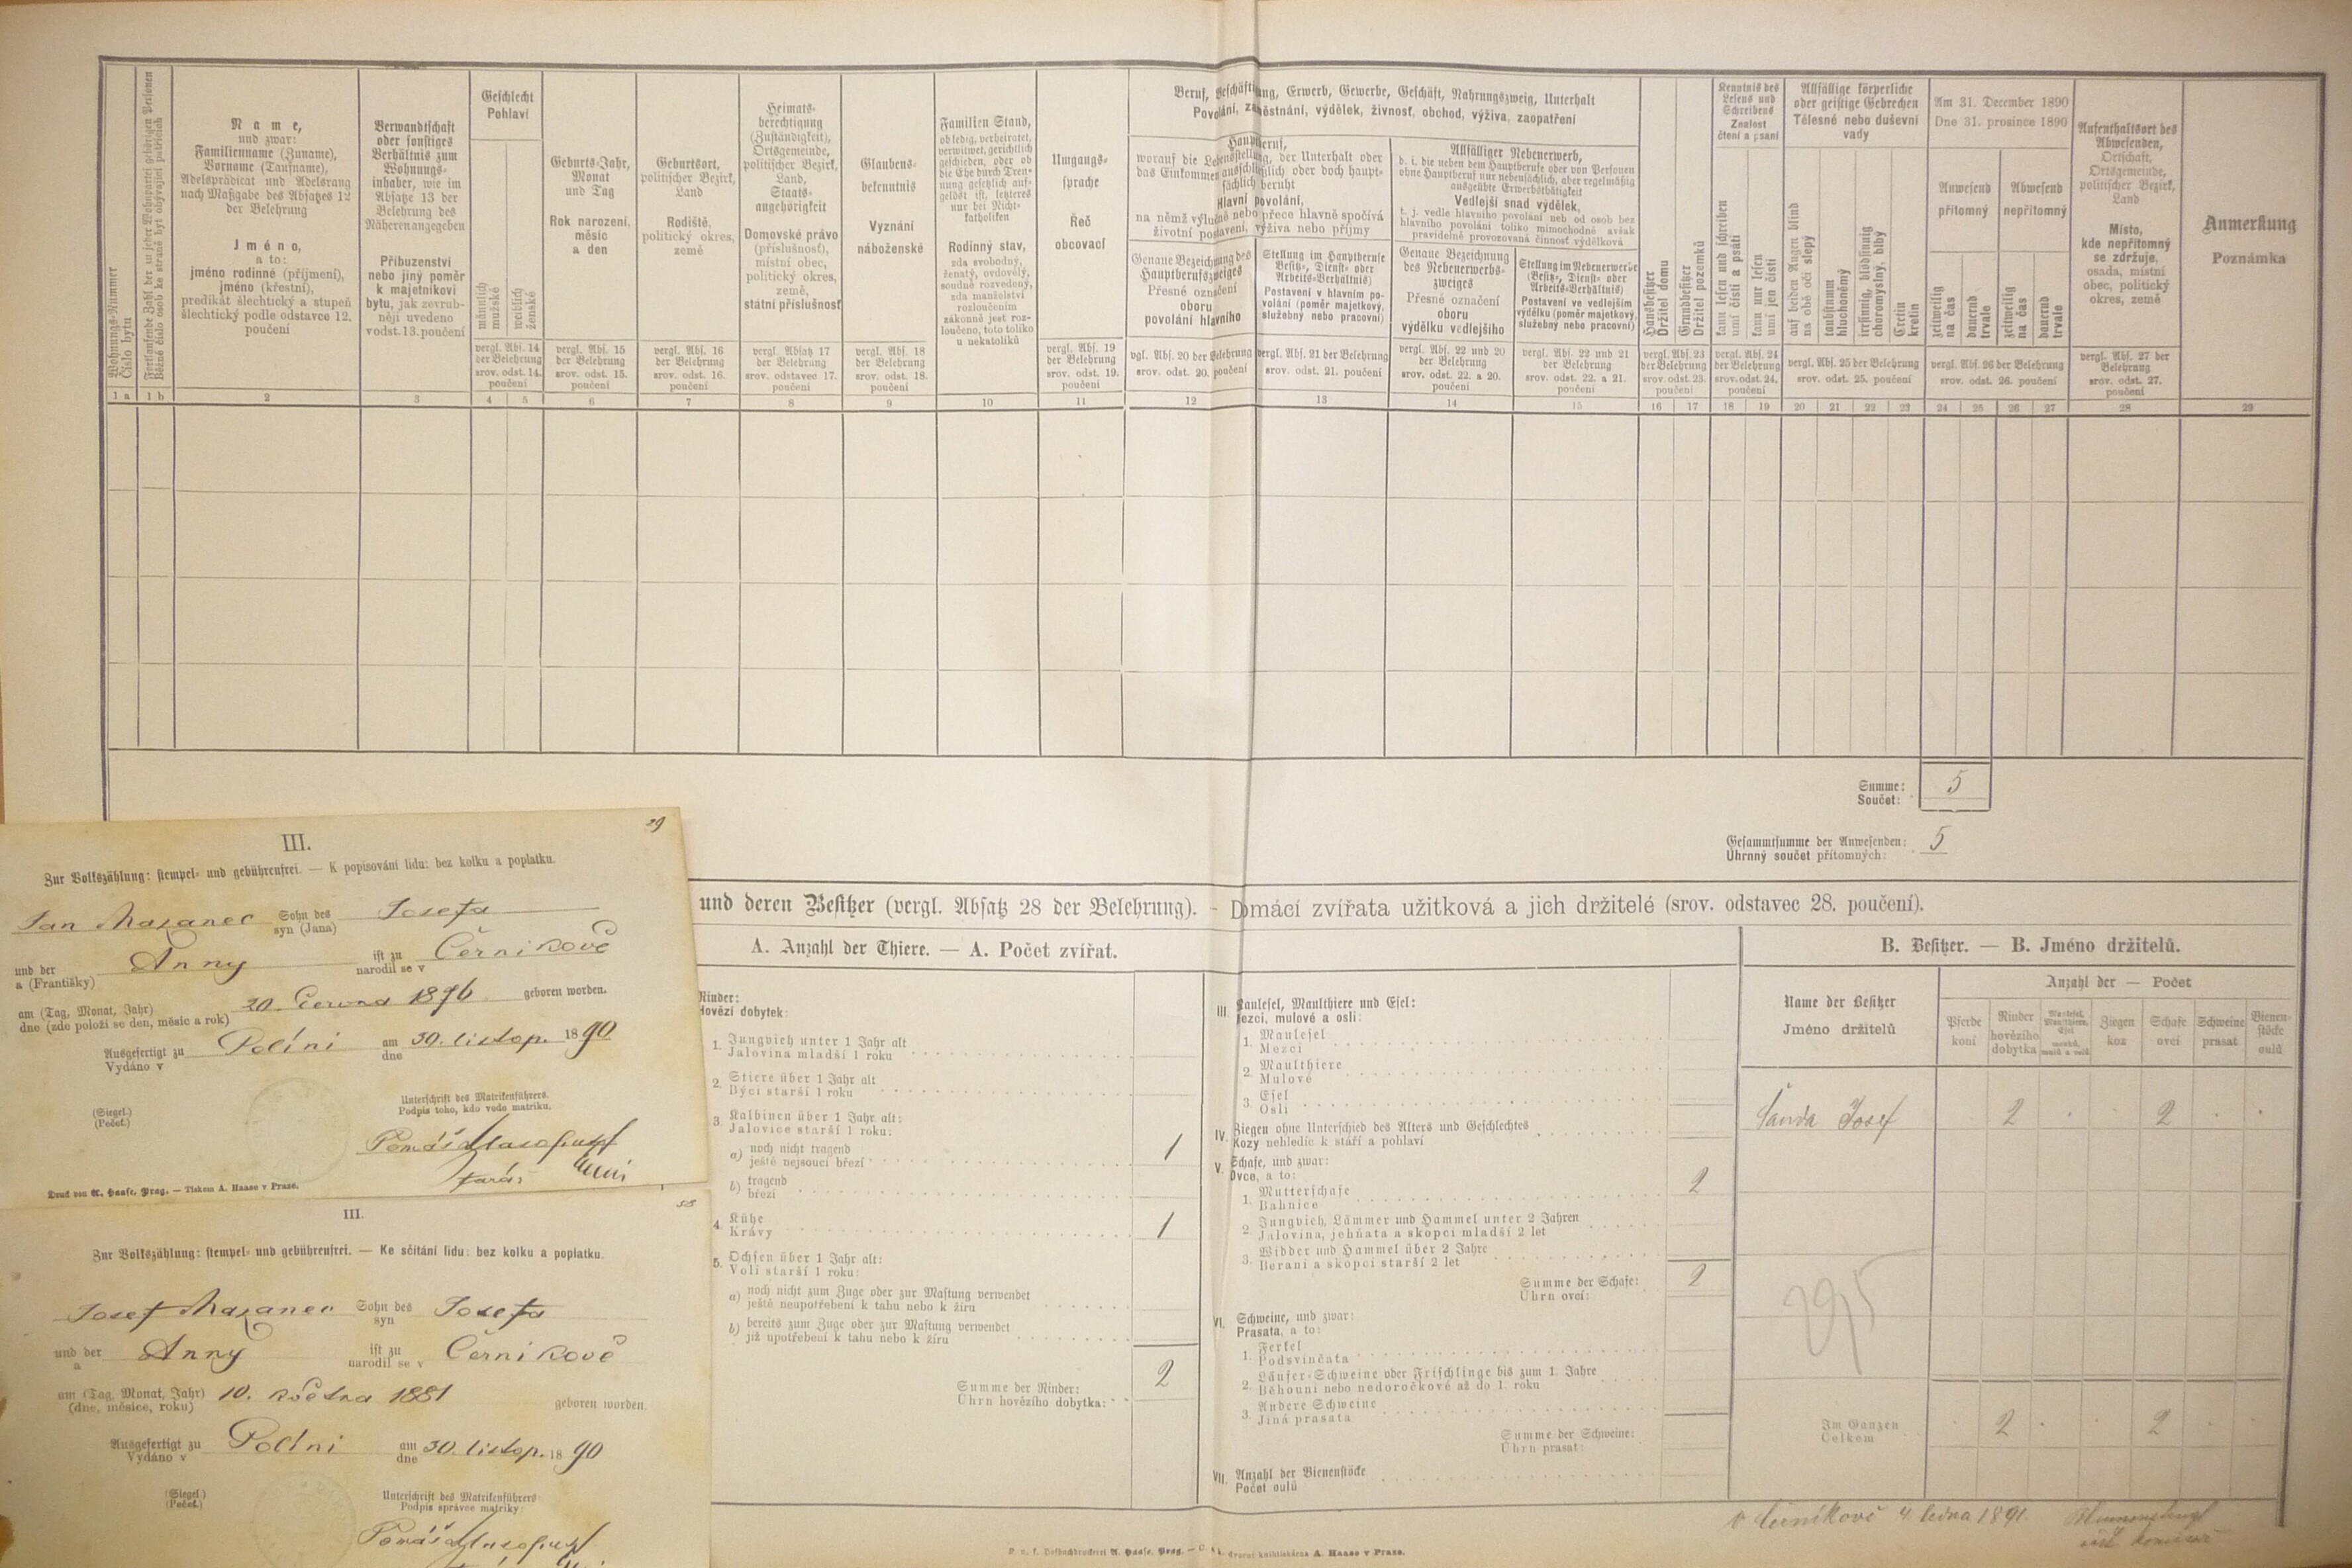 Wohnungs-Nummer
Číslo bytu
Fortlaufende Zahl der zu jeder Wohnpartei gehörigen Personen
Běžné číslo osob ke straně byt obývající patřících
Name,
und zwar:
Familienname (Zuname),
Vorname (Taufname),
Adelsprädicat und Adelsrang
nach Maßgabe des Absatzes 12
der Belehrung
Jméno,
a to:
jméno rodinné (příjmení),
jméno (křestní),
predikát šlechtický a stupeň
šlechtický podle odstavce 12.
poučení
Verwandtschaft
oder sonstiges
Verhältnis zum
Wohnungs-
inhaber, wie im
Absatze 13 der
Belehrung des
Näheren angegeben
Příbuzenství
nebo jiný poměr
k majetníkovi
bytu, jak zevrub-
něji uvedeno
v odst. 13. poučení
Geschlecht
Pohlaví
männlich
mužské
weiblich
ženské
vergl. Abs. 14
der Belehrung
srov. odst. 14.
poučení
Geburts-Jahr,
Monat
und Tag
Rok narození,
měsíc
a den
vergl. Abs. 15
der Belehrung
srov. odst. 15.
poučení
Geburtsort,
politischer Bezirk,
Land
Rodiště,
politický okres,
země
vergl. Abs. 16
der Belehrung
srov. odst. 16.
poučení
Heimats-
berechtigung
(Zuständigkeit),
Ortsgemeinde,
politischer Bezirk,
Land,
Staats-
angehörigkeit
Domovské právo
(příslušnost),
místní obec,
politický okres,
země,
státní příslušnost
vergl. Absatz 17
der Belehrung
srov. odstavec 17.
poučení
Glaubens-
bekenntnis
Vyznání
náboženské
vergl. Abs. 18
der Belehrung
srov. odst. 18.
poučení
Familien Stand,
ob ledig, verheiratet,
verwitwet, gerichtlich
geschieden, oder ob
die Ehe durch Tren-
nung gesetzlich auf-
gelöst ist, letzteres
nur bei Nicht-
katholiken
Rodinný stav,
zda svobodný,
ženatý, ovdovělý,
soudně rozvedený,
zda manželství
rozloučením
zákonně jest roz-
loučeno, toto toliko
u nekatolíků
Umgangs-
sprache
Řeč
obcovací
vergl. Abs. 19
der Belehrung
srov. odst. 19.
poučení
Beruf, Beschäftigung, Erwerb, Gewerbe, Geschäft, Nahrungszweig, Unterhalt
Povolání, zaměstnání, výdělek, živnost, obchod, výživa, zaopatření
Hauptberuf,
worauf die Lebensstellung, der Unterhalt oder
das Einkommen ausschließlich oder doch haupt-
sächlich beruht
Hlavní povolání,
na němž výlučně nebo přece hlavně spočívá
životní postavení, výživa nebo příjmy
Genaue Bezeichnung des
Hauptberufszweiges
Přesné označení
oboru
povolání hlavního
vgl. Abs. 20 der Belehrung
srov. odst. 20. poučení
Stellung im Hauptberufe
(Besitz-, Dienst- oder
Arbeits-Verhältnis)
Postavení v hlavním po-
volání (poměr majetkový,
služebný nebo pracovní)
vergl. Abs. 21 der Belehrung
srov. odst. 21. poučení
Allfälliger Nebenerwerb,
b. i. die neben dem Hauptberufe oder von Personen
ohne Hauptberuf nur nebensächlich, aber regelmäßig
ausgeübte Erwerbsthätigkeit
Vedlejší snad výdělek,
t. j. vedle hlavního povolání neb od osob bez
hlavního povolání toliko mimochodně avšak
pravidelně provozovaná činnost výdělková
Genaue Bezeichnung
des Nebenerwerbs-
zweiges
Přesné označení
oboru
výdělku vedlejšího
vergl. Abs. 22 und 20
der Belehrung
srov. odst. 22. a 20.
poučení
Stellung im Nebenerwerbe
(Besitz-, Dienst- oder
Arbeits-Verhältnis)
Postavení ve vedlejším
výdělku (poměr majetkový,
služebný nebo pracovní)
vergl. Abs. 22 und 21
der Belehrung
srov. odst. 22. a 21.
poučení
Hausbesitzer
Držitel domu
Grundbesitzer
Držitel pozemků
vergl. Abs. 23
der Belehrung
srov. odst. 23.
poučení
Kenntnis des
Lesens und
Schreibens
Znalost
čtení a psaní
kann lesen und schreiben
umí čísti a psáti
kann nur lesen
umí jen čísti
vergl. Abs. 24
der Belehrung
srov. odst. 24.
poučení
Allfällige körperliche
oder geistige Gebrechen
Tělesné nebo duševní
vady
auf beiden Augen blind
na obě oči slepý
taubstumm
hluchoněmý
irrsinnig, blödsinnig
choromyslný, blbý
Cretin
kretin
vergl. Abs. 25 der Belehrung
srov. odst. 25. poučení
Am 31. December 1890
Dne 31. prosince 1890
Anwesend
přítomný
Abwesend
nepřítomný
zeitweilig
na čas
dauernd
trvale
zeitweilig
na čas
dauernd
trvale
vergl. Abs. 26 der Belehrung
srov. odst. 26. poučení
Aufenthaltsort des
Abwesenden,
Ortschaft,
Ortsgemeinde,
politischer Bezirk,
Land
Místo,
kde nepřítomný
se zdržuje,
osada, místní
obec, politický
okres, země
vergl. Abs. 27 der
Belehrung
srov. odst. 27.
poučení
Anmerkung
Poznámka
1 a 1 b 2 3 4 5 6 7 8 9 10 11 12 13 14 15 16 17 18 19 20 21 22 23 24 25 26 27 28 29
Summe:
Součet: 5
Gesammtsumme der Anwesenden:
Úhrnný součet přítomných: 5
29
III.
Zur Volkszählung: stempel- und gebührenfrei. — K popisování lidu: bez kolku a poplatku.
Jan Mazanec Sohn des
syn (Jana) Josefa
und der
a (Františky) Anny ist zu
narodil se v Černikově
am (Tag, Monat, Jahr)
dne (zde položí se den, měsíc a rok) 20. června 1876 geboren worden.
Ausgefertigt zu
Vydáno v Poléni am
dne 30. listop. 1890
(Siegel.)
(Pečeť.)
Unterschrift des Matrikenführers.
Podpis toho, kdo vede matriku.
Tomáš
farář
Druck von A. Haase, Prag. — Tiskem A. Haase v Praze.
III.
Zur Volkszählung: stempel- und gebührenfrei. — Ke sčítání lidu: bez kolku a poplatku.
Josef Mazanec Sohn des
syn Josefa
und der
a Anny ist zu
narodil se v Černikově
am (Tag, Monat, Jahr)
(dne, měsíce, roku) 10. května 1881 geboren worden.
Ausgefertigt zu
Vydáno v Poléni am
dne 30. listop. 1890
(Siegel.)
(Pečeť.)
Unterschrift des Matrikenführers:
Podpis správce matriky:
Tomáš
und deren Besitzer (vergl. Absatz 28 der Belehrung). - Domácí zvířata užitková a jich držitelé (srov. odstavec 28. poučení).
A. Anzahl der Thiere. — A. Počet zvířat.
Rinder:
Hovězí dobytek:
1. Jungvieh unter 1 Jahr alt
Jalovina mladší 1 roku
2. Stiere über 1 Jahr alt
Býci starší 1 roku
3. Kalbinen über 1 Jahr alt:
Jalovice starší 1 roku:
a) noch nicht tragend
ještě nejsoucí březí 1
b) tragend
březí
4. Kühe
Krávy 1
5. Ochsen über 1 Jahr alt:
Voli starší 1 roku:
a) noch nicht zum Zuge oder zur Mastung verwendet
ještě neupotřebení k tahu nebo k žíru
b) bereits zum Zuge oder zur Mastung verwendet
již upotřebení k tahu nebo k žíru
Summe der Rinder:
Úhrn hovězího dobytka: 2
III. Maulesel, Maulthiere und Esel:
Mezci, mulové a osli:
1. Maulesel
Mezci
2. Maulthiere
Mulové
3. Esel
Osli
IV. Ziegen ohne Unterschied des Alters und Geschlechtes
Kozy nehledíc k stáří a pohlaví
V. Schafe, und zwar:
Ovce, a to:
1. Mutterschafe
Bahnice 2
2. Jungvieh, Lämmer und Hammel unter 2 Jahren
Jalovina, jehňata a skopci mladší 2 let
3. Widder und Hammel über 2 Jahre
Berani a skopci starší 2 let
Summe der Schafe:
Úhrn ovcí: 2
VI. Schweine, und zwar:
Prasata, a to:
1. Ferkel
Podsvinčata
2. Läufer-Schweine oder Frischlinge bis zum 1. Jahre
Běhouni nebo nedoročkové až do 1. roku
3. Andere Schweine
Jiná prasata
Summe der Schweine:
Úhrn prasat:
VII. Anzahl der Bienenstöcke
Počet oulů
B. Besitzer. — B. Jméno držitelů.
Name der Besitzer
Jméno držitelů
Anzahl der — Počet
Pferde
koní
Rinder
hovězího
dobytka
Ziegen
koz
Schafe
ovcí
Schweine
prasat
Bienen-
stöcke
oulů
Šanda Josef 2 2
295
Im Ganzen
Celkem 2 2
V Černíkově 4 ledna 1891.
K. k. Hofbuchdruckerei A. Haase, Prag. — C. k. dvorní knihtiskárna A. Haase v Praze.